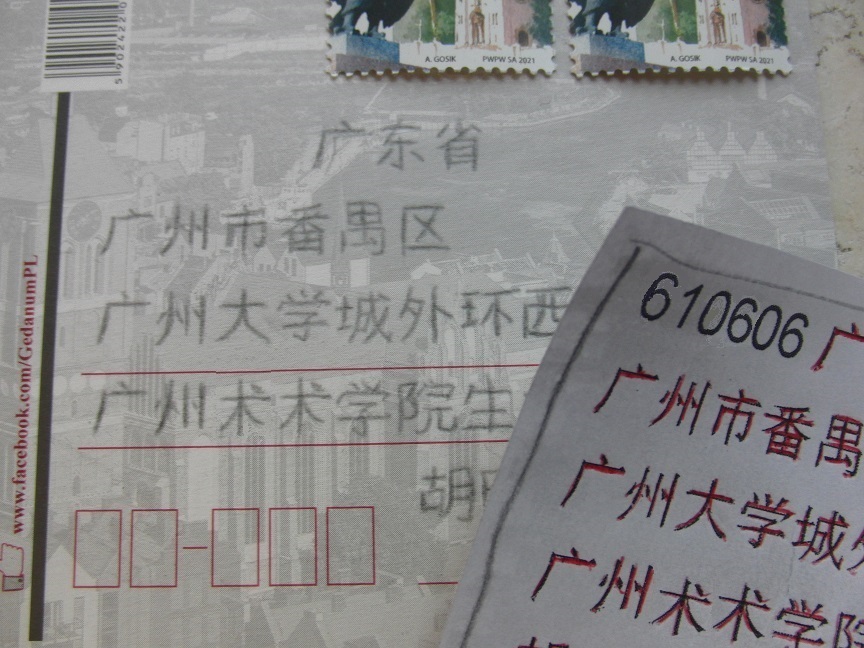 A. GOSIK PWPW SA 2021
A. GOSIK PWPW SA 2021
5 902422 0
www.facebook.com/GedanumPL
广东省
广州市番禺区
广州大学城外环西
广州术术学院生
胡
610606 广
广州市番禺
广州大学城外
广州术术学院